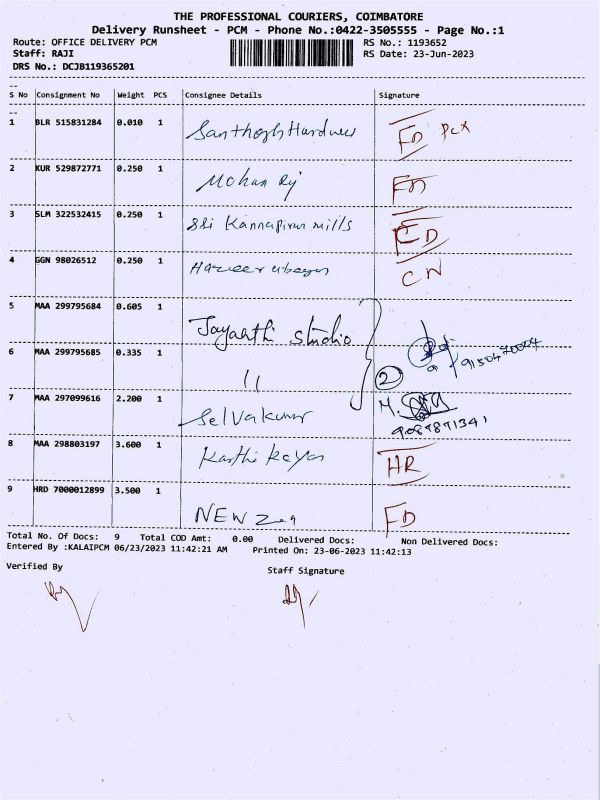 THE PROFESSIONAL COURIERS, COIMBATORE
Delivery Runsheet - PCM - Phone No.:0422-3505555 - Page No.:1
Route: OFFICE DELIVERY PCM RS No.: 1193652
Staff: RAJI RS Date: 23-Jun-2023
DRS No.: DCJB119365201
S No Consignment No Weight PCS Consignee Details Signature
1 BLR 515831284 0.010 1 Santhosh Hardware FD
2 KUR 529872771 0.250 1 Mohan Raj FD
3 SLM 322532415 0.250 1 Sri Kannapiran mills FD
4 GGN 98026512 0.250 1 CN
5 MAA 299795684 0.605 1 Jayaathi studio
6 MAA 299795685 0.335 1 11 2
7 MAA 297099616 2.200 1 Selvakumar M.
8 MAA 298803197 3.600 1 Karthikeyan HR
9 HRD 7000012899 3.500 1 NEW FD
Total No. Of Docs: 9 Total COD Amt: 0.00 Delivered Docs: Non Delivered Docs:
Entered By :KALAIPCM 06/23/2023 11:42:21 AM Printed On: 23-06-2023 11:42:13
Verified By Staff Signature